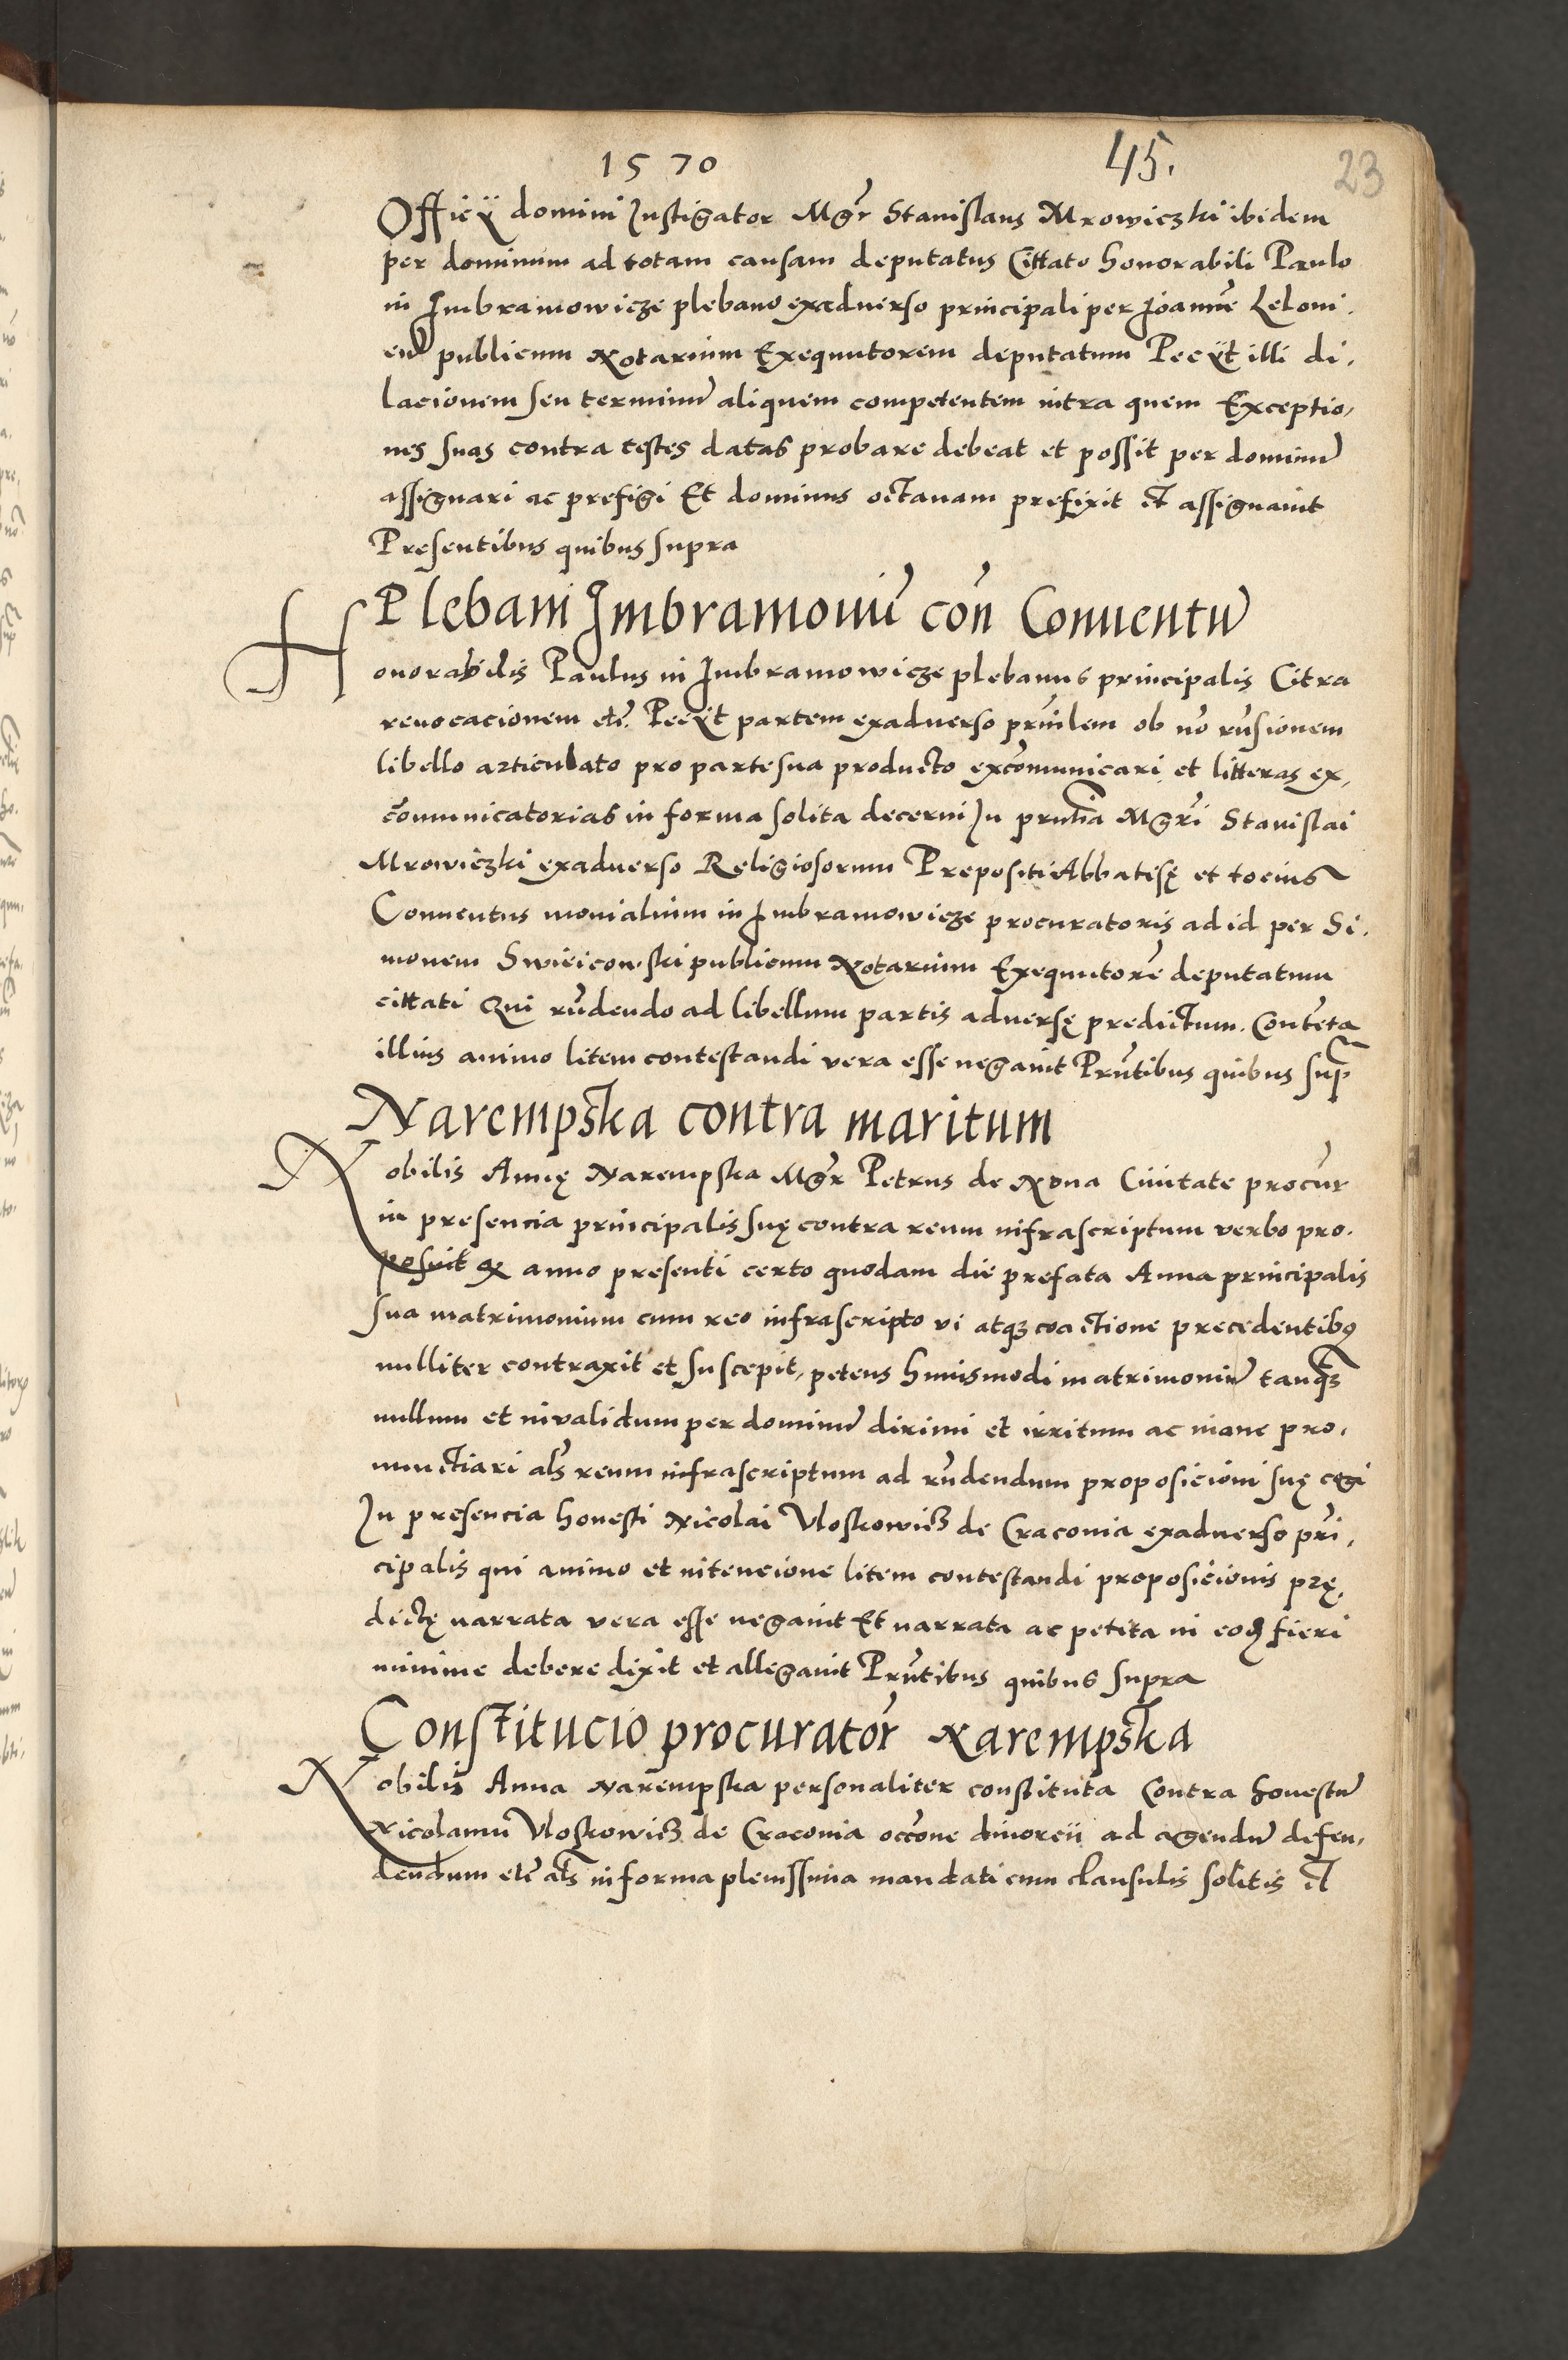 1570 45. 23
Officÿ domini Instigator Mgr̃ Stanislaus Mrowiczki ibidem
per dominum ad totam causam deputatus Cittato honorabili Paulo
in Imbramowicze plebano exaduerso principali per Joannẽ Leloni,
cũ publicum Notarium Exequutorem deputatum Peciÿt illi di,
lacionem seu terminũ aliquem competentem intra quem Exceptio,
nes suas contra testes datas probare debeat et possit per dominũ
assignari ac prefigi Et dominus octauam prefixit et assignauit
Presentibus quibus supra
Plebani Imbramouiẽ cõn Conuentũ
Honorabilis Paulus in Imbramowicze plebanus principalis Citra
reuocacionem etc̃. Peciÿt partem exaduerso prin̄lem ob nõ rñsionem
libello articulato pro parte sua producto excõmunicari et litteras ex,
cõmunicatorias in forma solita decerni In prñtia Mgr̃i Stanislai
Mrowiczki exaduerso Religiosorum Prepositi Abbatisę et tocius
Conuentus monialium in Imbramowicze procuratoris ad id per Si,
monem Swieicowski publicum Notarium Exequutorẽ deputatum
cittati Qui rñdendo ad libellum partis aduersę predictum. Contẽta
illius animo litem contestandi vera esse negauit Prñtibus quibus sup̃
Narempska contra maritum
Nobilis Annę Narempska Mgr̃ Petrus de Noua Ciuitate procur̃
in presencia principalis suę contra reum infrascriptum verbo pro,
posuit qz anno presenti certo quodam die prefata Anna principalis
sua matrimonium cum reo infrascripto vi atqz coactione precedentibꝰ
nulliter contraxit et suscepit, petens huiusmodi matrimoniũ tanqz̃
nullum et inualidum per dominũ dirimi et irritum ac inane pro,
nunctiari alš reum infrascriptum ad rñdendum proposicioni suę cogi
In presencia honesti Nicolai Vloskowicz de Craconia exaduerso prĩ,
cipalis qui animo et intencione litem contestandi proposicionis prę,
dictę narrata vera esse negauit Et narrata ac petita in eoꝗ fieri
minime debere dixit et allegauit Prñtibus quibus supra
Constitucio procurator̃ Narempska
Nobilis Anna Narempska personaliter constituta Contra honestũ
Nicolaum Vloskowicz de Craconia occõne diuorcii ad agendũ defen,
dendum etc̃ alš in forma plenissima mandati cum clausulis solitis et